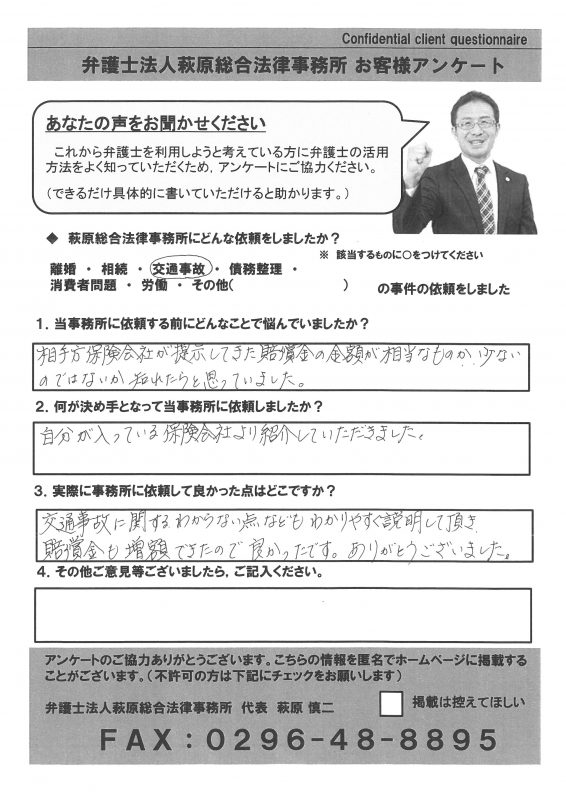 Confidential client questionnaire
弁護士法人萩原総合法律事務所 お客様アンケート
あなたの声をお聞かせください
これから弁護士を利用しようと考えている方に弁護士の活用
方法をよく知っていただくため，アンケートにご協力ください。
（できるだけ具体的に書いていただけると助かります。）
◆ 萩原総合法律事務所にどんな依頼をしましたか？
※ 該当するものに○をつけてください
離婚 ・ 相続 ・ 交通事故 ・ 債務整理 ・
消費者問題 ・ 労働 ・ その他( ) の事件の依頼をしました
1．当事務所に依頼する前にどんなことで悩んでいましたか？
相手方保険会社が提示してきた賠償金の金額が相当なものか、少ない
のではないか
と思っていました。
2．何が決め手となって当事務所に依頼しましたか？
自分が入っている保険会社より紹介していただきました。
3．実際に事務所に依頼して良かった点はどこですか？
交通事故に関するわからない点などもわかりやすく説明して頂き
賠償金も増額できたので良かったです。ありがとうございました。
4．その他ご意見等ございましたら，ご記入ください。
アンケートのご協力ありがとうございます。こちらの情報を匿名でホームページに掲載する
ことがございます。（不許可の方は下記にチェックをお願いします）
弁護士法人萩原総合法律事務所 代表 萩原 慎二
掲載は控えてほしい
FAX：0296-48-8895